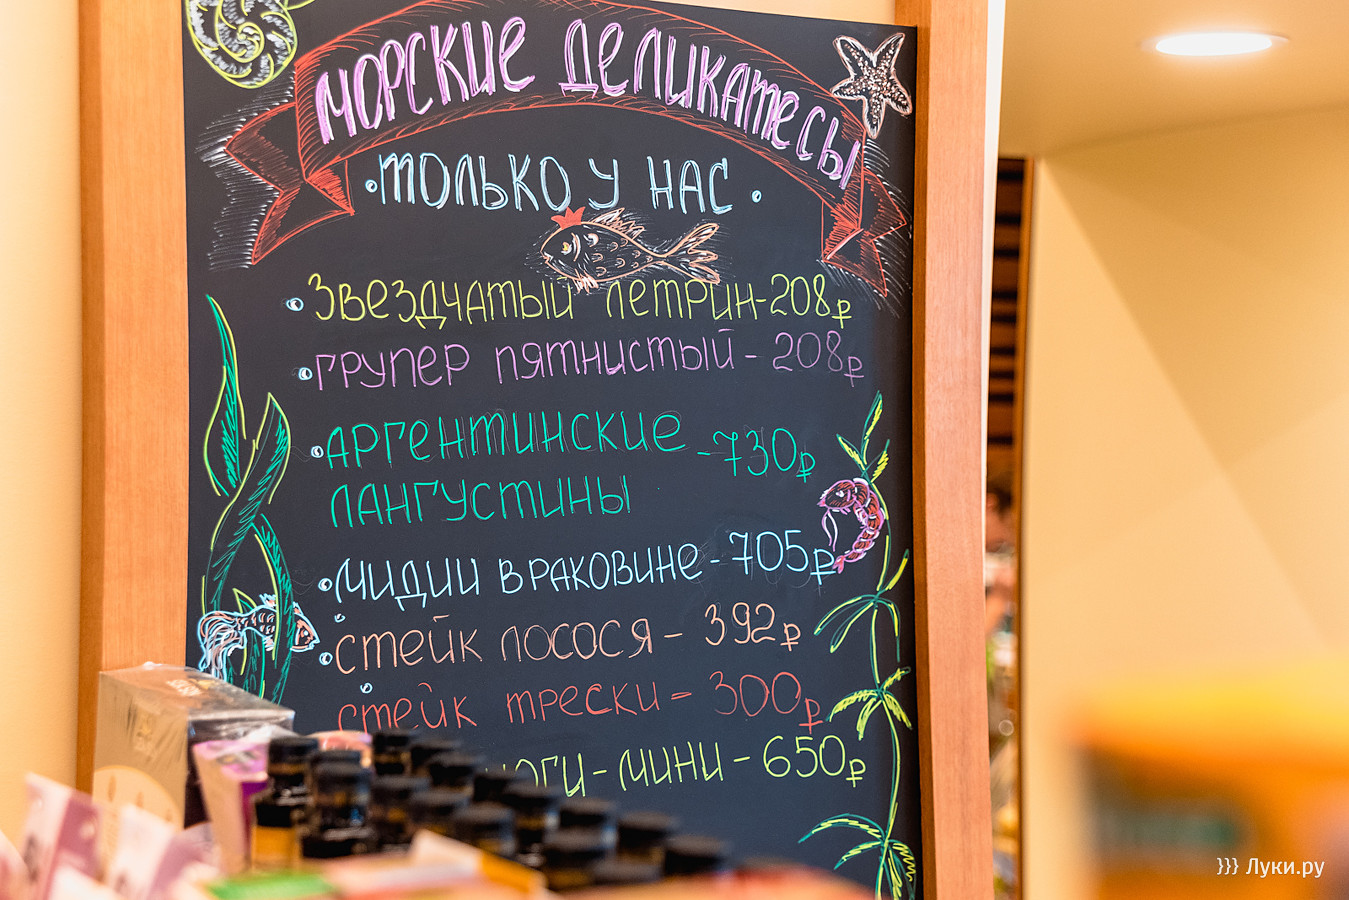 МОРСКИЕ ДЕЛИКАТЕСЫ
• ТОЛЬКО У НАС •
• ЗВЕЗДЧАТЫЙ ЛЕТРИН-208₽
• ГРУПЕР ПЯТНИСТЫЙ - 208₽
• АРГЕНТИНСКИЕ - 730₽
ЛАНГУСТИНЫ
• МИДИИ В РАКОВИНЕ - 705₽
• СТЕЙК ЛОСОСЯ - 392₽
СТЕЙК ТРЕСКИ - 300₽
-МИНИ - 650₽
}}} Луки.ру